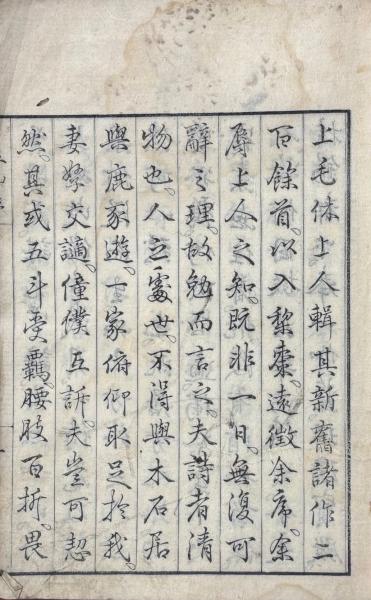 上毛休上人輯其新舊諸作二
百餘首。以入梨棗。遠徴余序。余
辱上人之知。既非一日。無復可
辭之理。故勉而言之。夫詩者清
物也。人之處世。不得與木石居
與鹿豕遊。一家俯仰取足於我。
妻孥交謫。僮僕互訴。夫豈可恝
然。其或五斗受羈。腰肢百折。畏